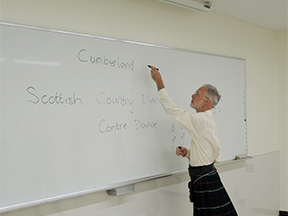 Cumberland
Scottish Country
Contre Dance